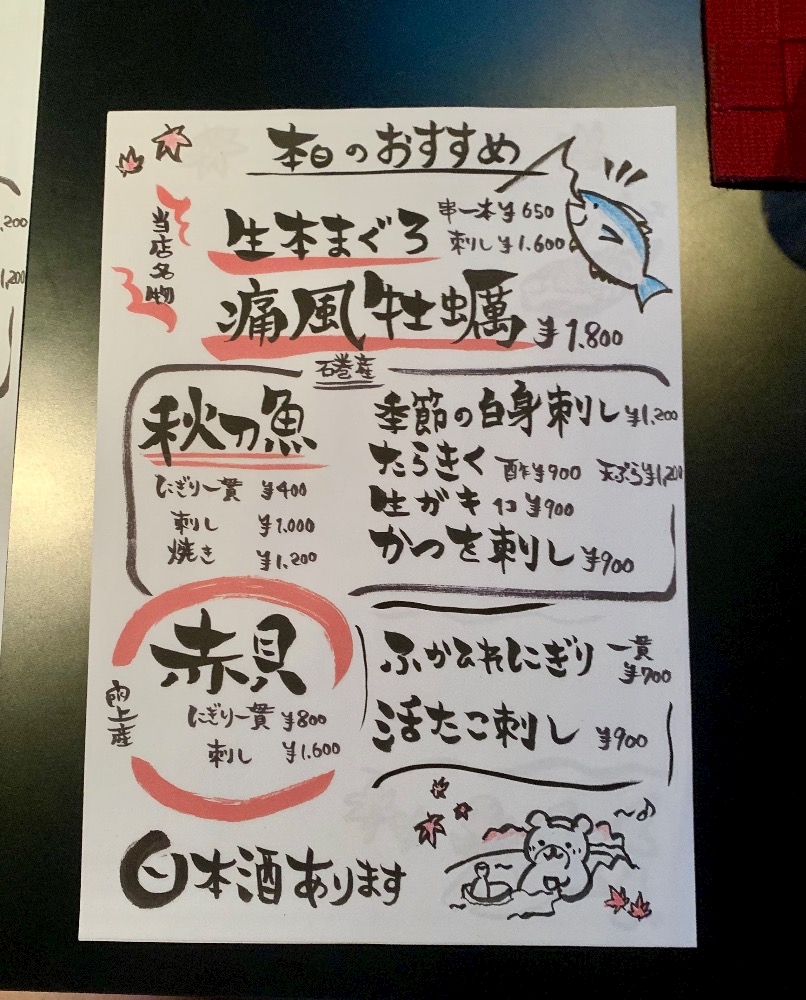 本日のおすすめ
当店名物
生本まぐろ 串一本 ¥650
刺し ¥1.600
痛風牡蠣 ¥1.800
石巻産
秋刀魚
にぎり一貫 ¥400
刺し ¥1.000
焼き ¥1.200
季節の白身刺し ¥1.200
たらきく 酢 ¥900 天ぷら ¥1.200
生ガキ 1コ ¥900
かつを刺し ¥900
赤貝
閖上産
にぎり一貫 ¥800
刺し ¥1.600
ふかひれにぎり 一貫 ¥700
活たこ刺し ¥900
日本酒あります
,200
1,200